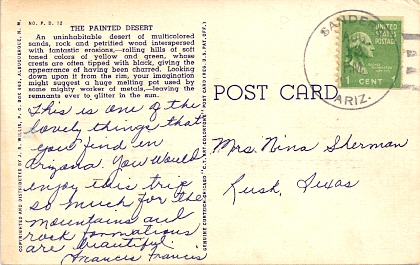 NO. P. D. 12
THE PAINTED DESERT
An uninhabitable desert of multicolored
sands, rock and petrified wood interspersed
with fantastic erosions,—rolling hills of soft
toned colors of yellow and green, whose
crests are often tipped with black, giving the
appearance of having been charred. Looking
down upon it from the rim, your imagination
might suggest a huge melting pot used by
some mighty worker of metals,—leaving the
remnants ever to glitter in the sun.
This is one of the
lovely things that
you find in
Arizona. You would
enjoy this trip
so much for the
mountains and
rock formations
are beautiful.
Frances Francis
POST CARD
SANDERS
ARIZ.
UNITED STATES
POSTAGE
CENT
Mrs. Nina Sherman
Rusk, Texas